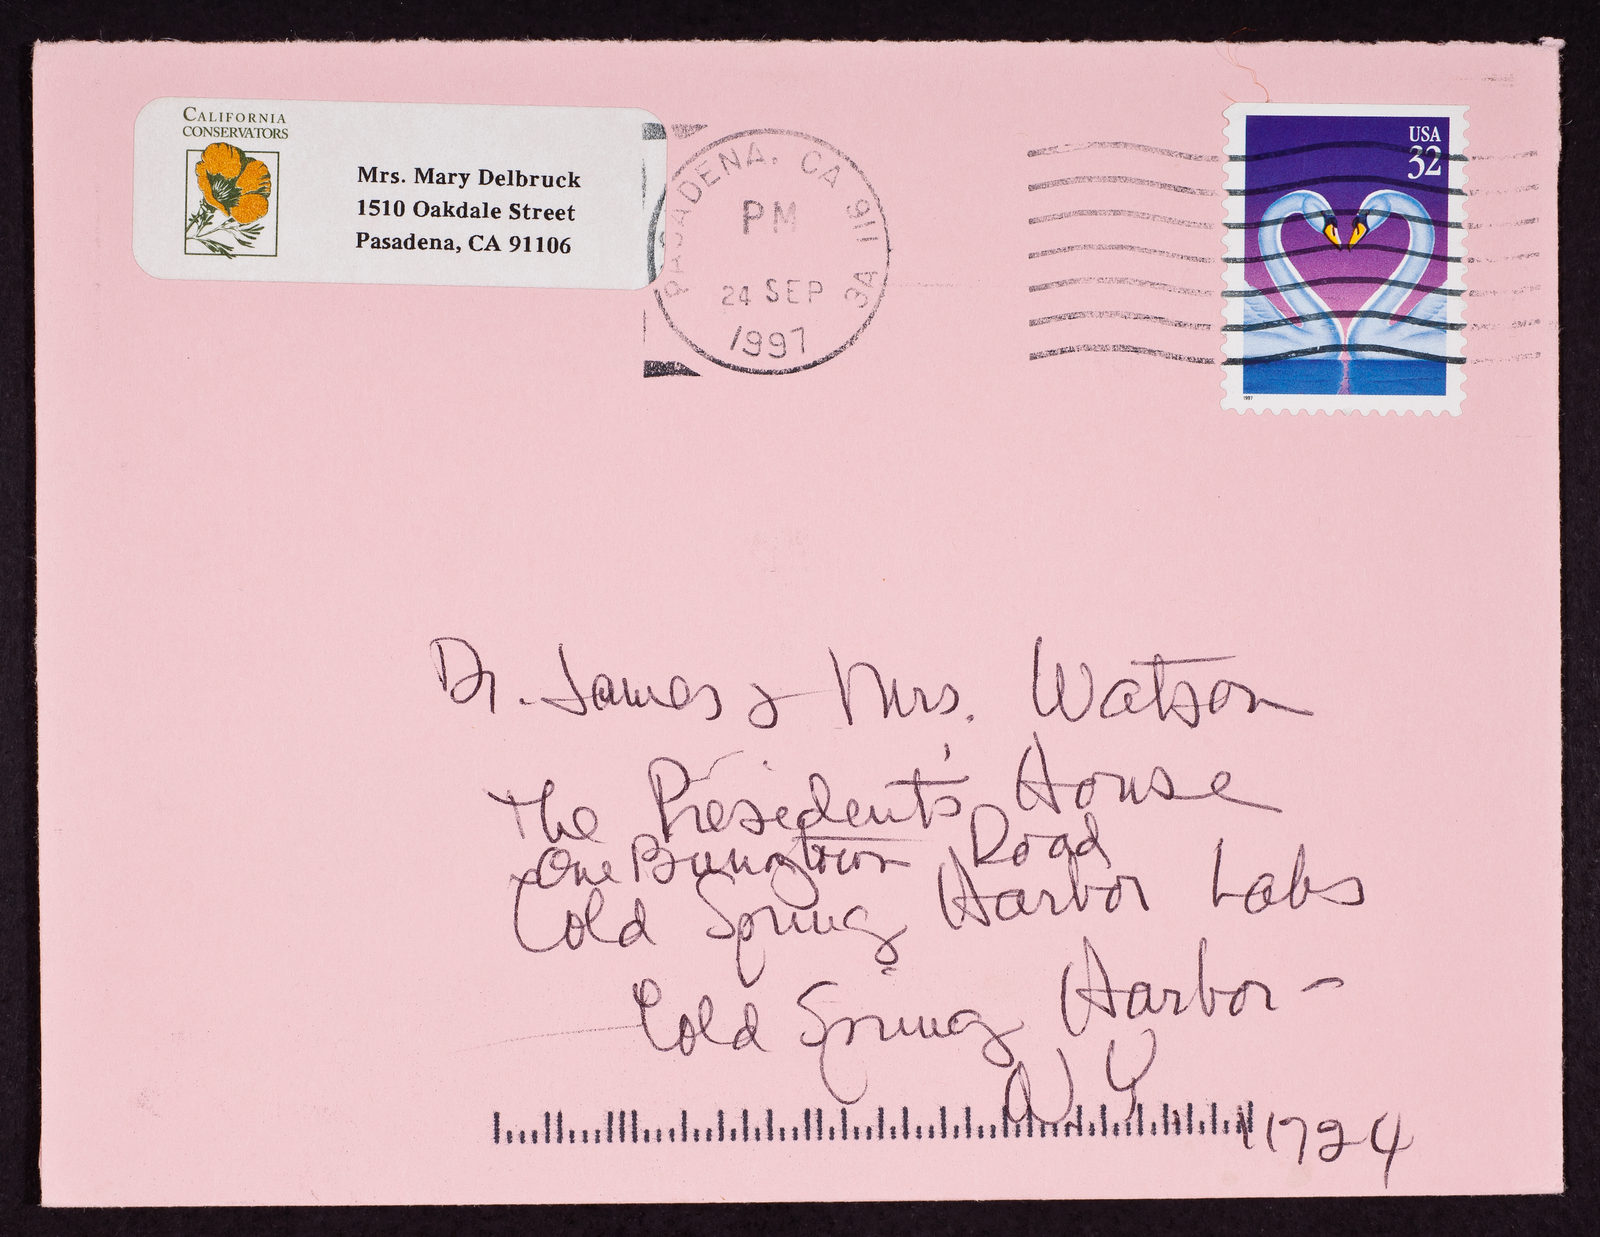 CALIFORNIA
CONSERVATORS
Mrs. Mary Delbruck
1510 Oakdale Street
Pasadena, CA 91106
PASADENA, CA 911
PM
3A
24 SEP
1997
USA
32
1997
Dr. James & Mrs. Watson
The President's House
One Bungtown Road
Cold Spring Harbor Labs
Cold Spring Harbor-
N.Y.
11724